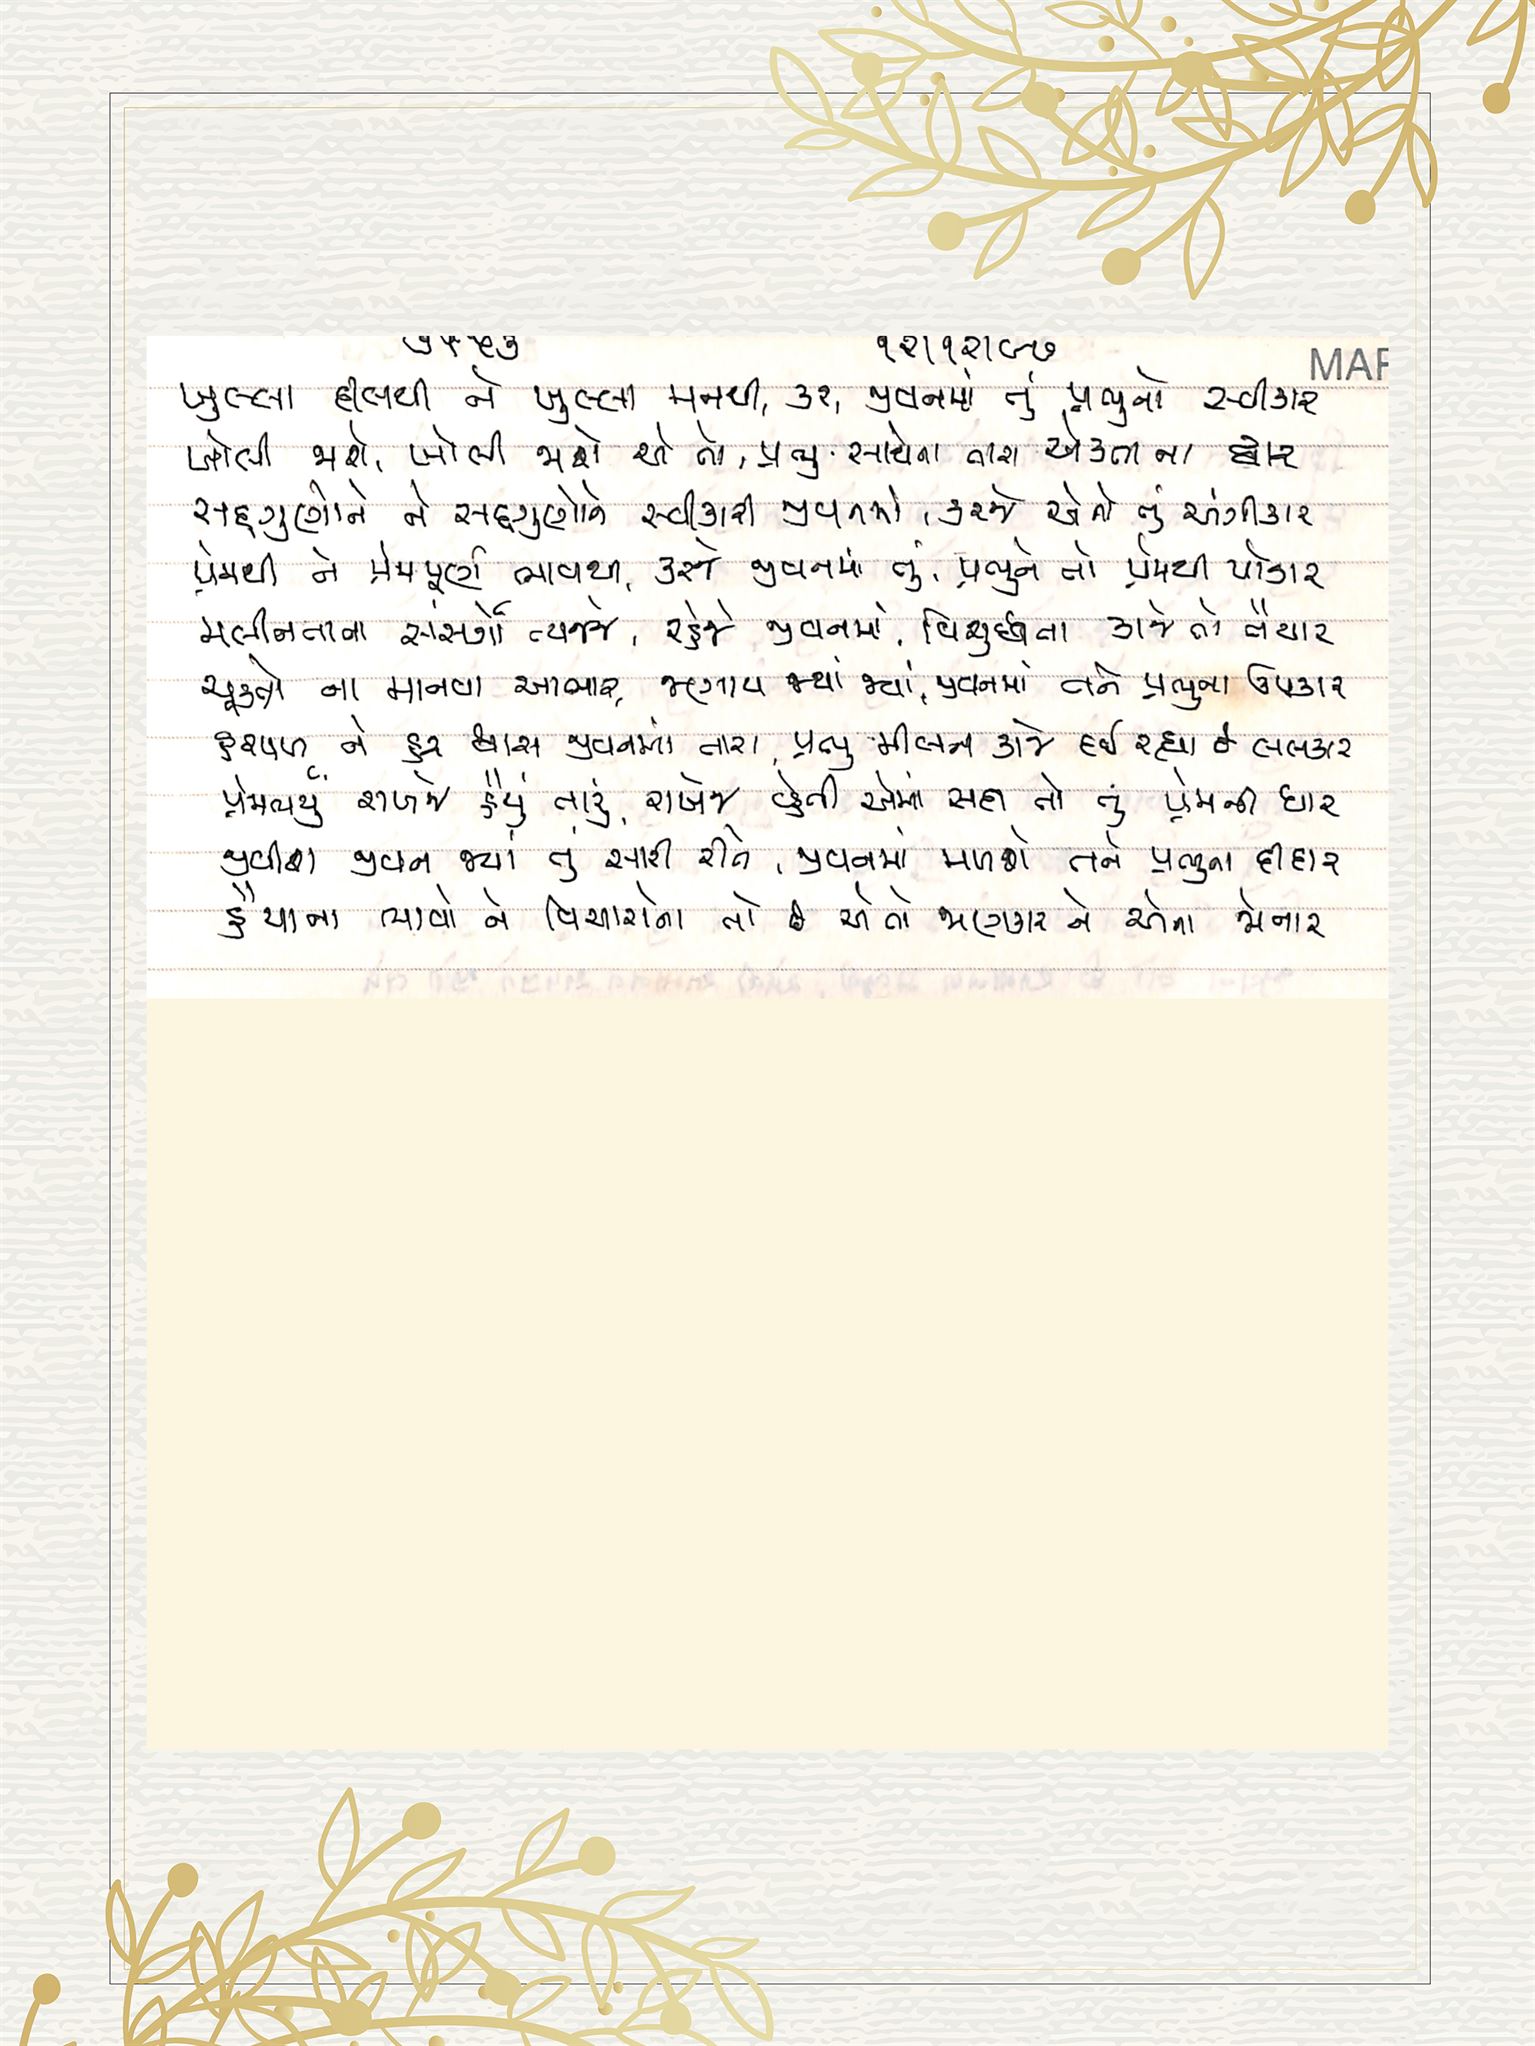 ૧૨।૧૨।૯૭
MAR
ખુલ્લા દીલથી ને ખુલ્લા મનથી, કર, જીવનમાં તું પ્રભુનો સ્વીકાર
ખોલી જાશે, ખોલી જાશે એ તો, પ્રભુ સાથેના તારા એકતાના દ્વાર
સદ્દગુણોને ને સદ્દગુણોને સ્વીકારી જીવનમાં, કરજે એનો તું અંગીકાર
પ્રેમથી ને પ્રેમપૂર્ણ ભાવથી, કરજે જીવનમાં તું, પ્રભુને તો પ્રેમથી પોકાર
મલીનતાના સંસર્ગો ત્યજજે, રહેજે જીવનમાં, વિશુદ્ધતા કાજે તો તૈયાર
ચૂકતો ના માનવા આભાર, જણાય જ્યાં જ્યાં, જીવનમાં તને પ્રભુના ઉપકાર
હરપળ ને હર શ્વાસ જીવનમાં તારા, પ્રભુ મીલન કાજે દઈ રહ્યા છે લલકાર
પ્રેમભર્યું રાખજે હૈયું તારું, રાખજે વ્હેતી એમાં સદા તો તું પ્રેમની ધાર
જીવીશ જીવન જ્યાં તું સારી રીતે, જીવનમાં મળશે તને પ્રભુના દીદાર
હૈયાના ભાવો ને વિચારોના તો છે એ તો જાણકાર ને એના જોનાર